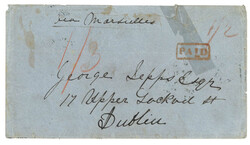 via Marseilles
1/3
PAID
George
Esqr
17 Upper
st
Dublin